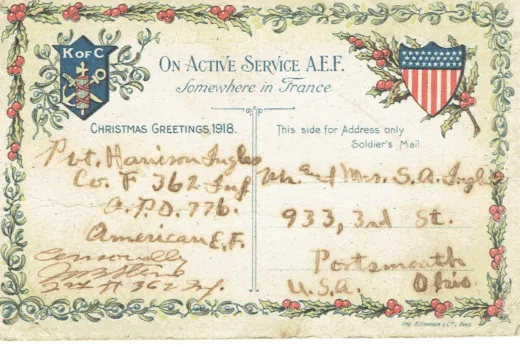 K of C
ON ACTIVE SERVICE A.E.F.
Somewhere in France
CHRISTMAS GREETINGS, 1918.
Pvt. Harrison Ingles
Co. F 362 Inf
A.P.D. 776.
American E.F.
This side for Address only
Soldier's Mail
Mr. and Mrs. S.A. Ingles
933, 3rd St.
Portsmouth
U.S.A. Ohio.
362